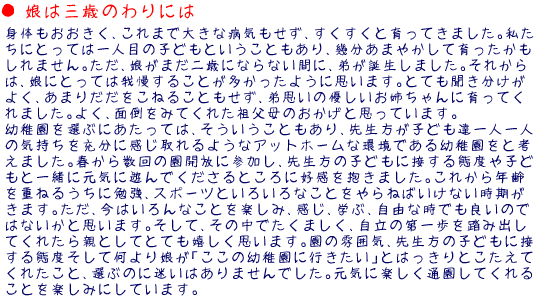 ● 娘は三歳のわりには
身体もおおきく、これまで大きな病気もせず、すくすくと育ってきました。私た
ちにとっては一人目の子どもということもあり、幾分あまやかして育ったかも
しれません。ただ、娘がまだ二歳にならない間に、弟が誕生しました。それから
は、娘にとっては我慢することが多かったように思います。とても聞き分けが
よく、あまりだだをこねることもせず、弟思いの優しいお姉ちゃんに育ってく
れました。よく、面倒をみてくれた祖父母のおかげと思っています。
幼稚園を選ぶにあたっては、そういうこともあり、先生方が子ども達一人一人
の気持ちを充分に感じ取れるようなアットホームな環境である幼稚園をと考
えました。春から数回の園開放に参加し、先生方の子どもに接する態度や子ど
もと一緒に元気に遊んでくださるところに好感を抱きました。これから年齢
を重ねるうちに勉強、スポーツといろいろなことをやらねばいけない時期が
きます。ただ、今はいろんなことを楽しみ、感じ、学ぶ、自由な時でも良いので
はないかと思います。そして、その中でたくましく、自立の第一歩を踏み出し
てくれたら親としてとても嬉しく思います。園の雰囲気、先生方の子どもに接
する態度そして何より娘が「ここの幼稚園に行きたい」とはっきりとこたえて
くれたこと、選ぶのに迷いはありませんでした。元気に楽しく通園してくれる
ことを楽しみにしています。